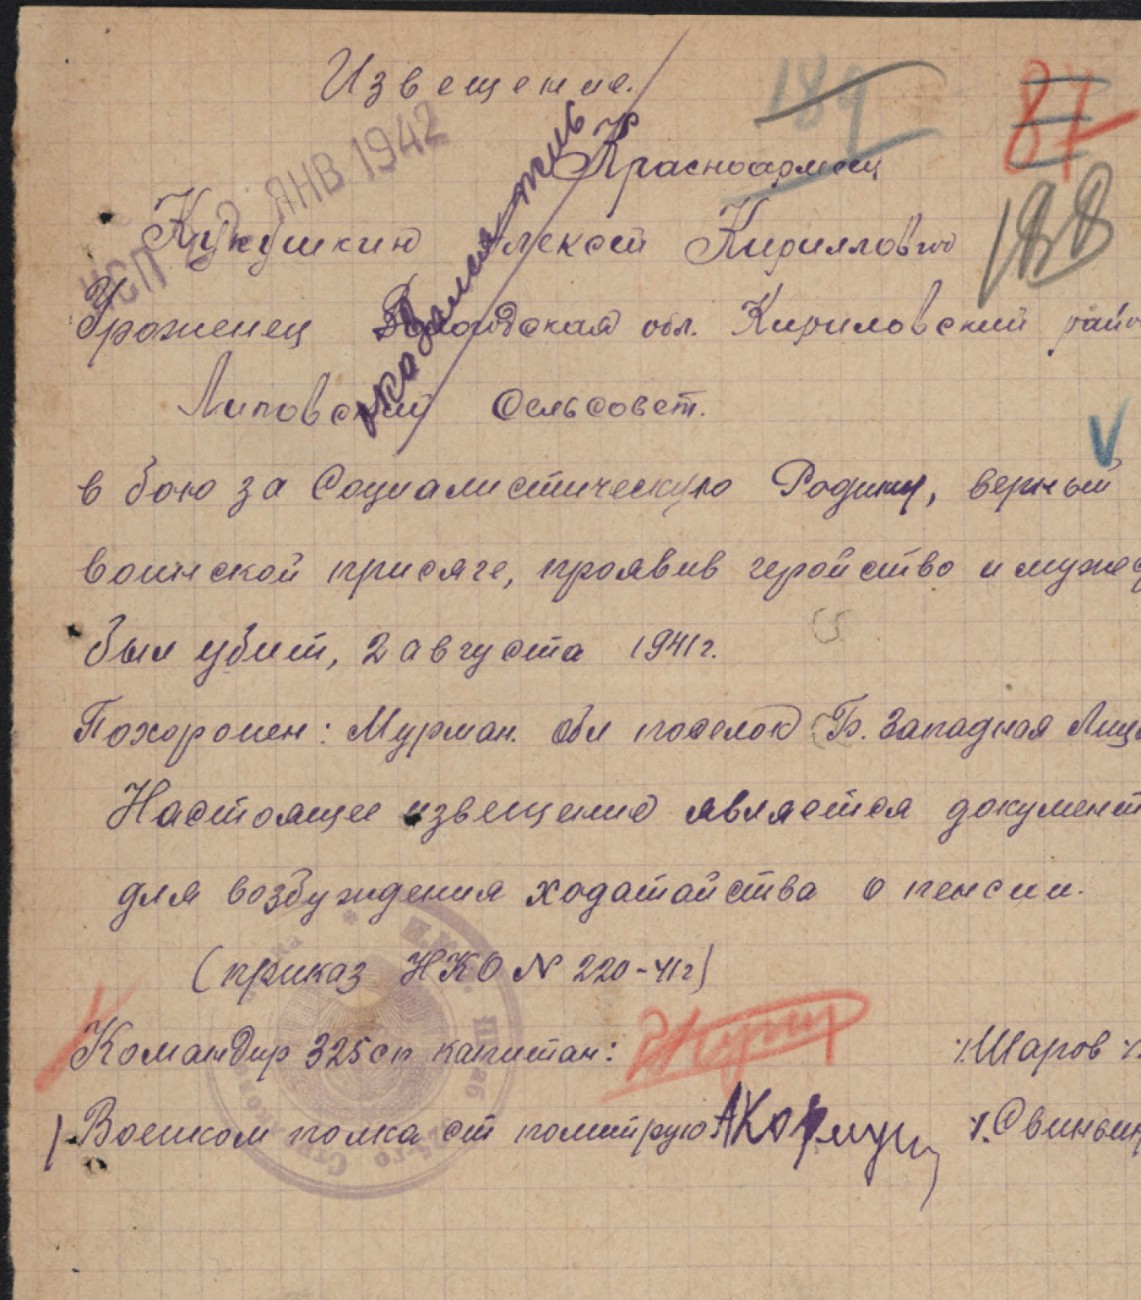 Извещение.
189
87
188
ЯНВ. 1942
оказался жив
Красноармеец
Кукушкин Алексей Кириллович
Уроженец Вологодская обл. Кирилловский район
Липовский Сельсовет.
V
в бою за Социалистическую Родину, верный
воинской присяге, проявив геройство и мужес
был убит, 2 августа 1941г.
Похоронен: Мурман. обл поселок Б. Западная Лица
Настоящее извещение является документ
для возбуждения ходатайства о пенсии.
(приказ НКО № 220-41г)
Командир 325сп капитан: /.Шаров
/.Военком полка ст политрук